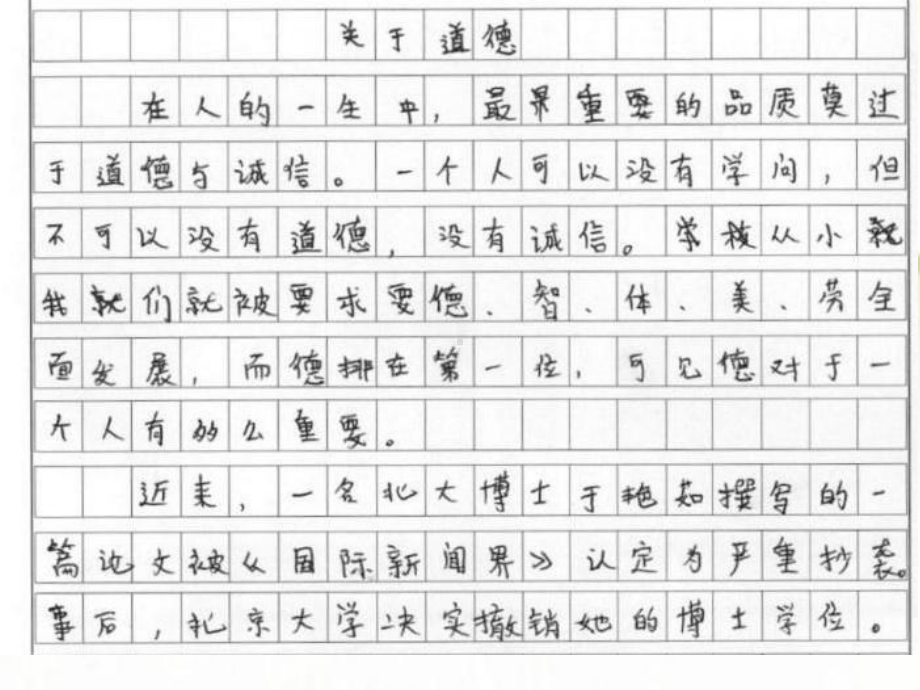 关于道德
在人的一生中，最重要的品质莫过
于道德与诚信。一个人可以没有学问，但
不可以没有道德，没有诚信。学校从小就
我就们就被要求要德、智、体、美、劳全
面发展，而德排在第一位，可见德对于一
个人有多么重要。
近来，一名北大博士于艳茹撰写的一
篇论文被《国际新闻界》认定为严重抄袭。
事后，北京大学决实撤销她的博士学位。